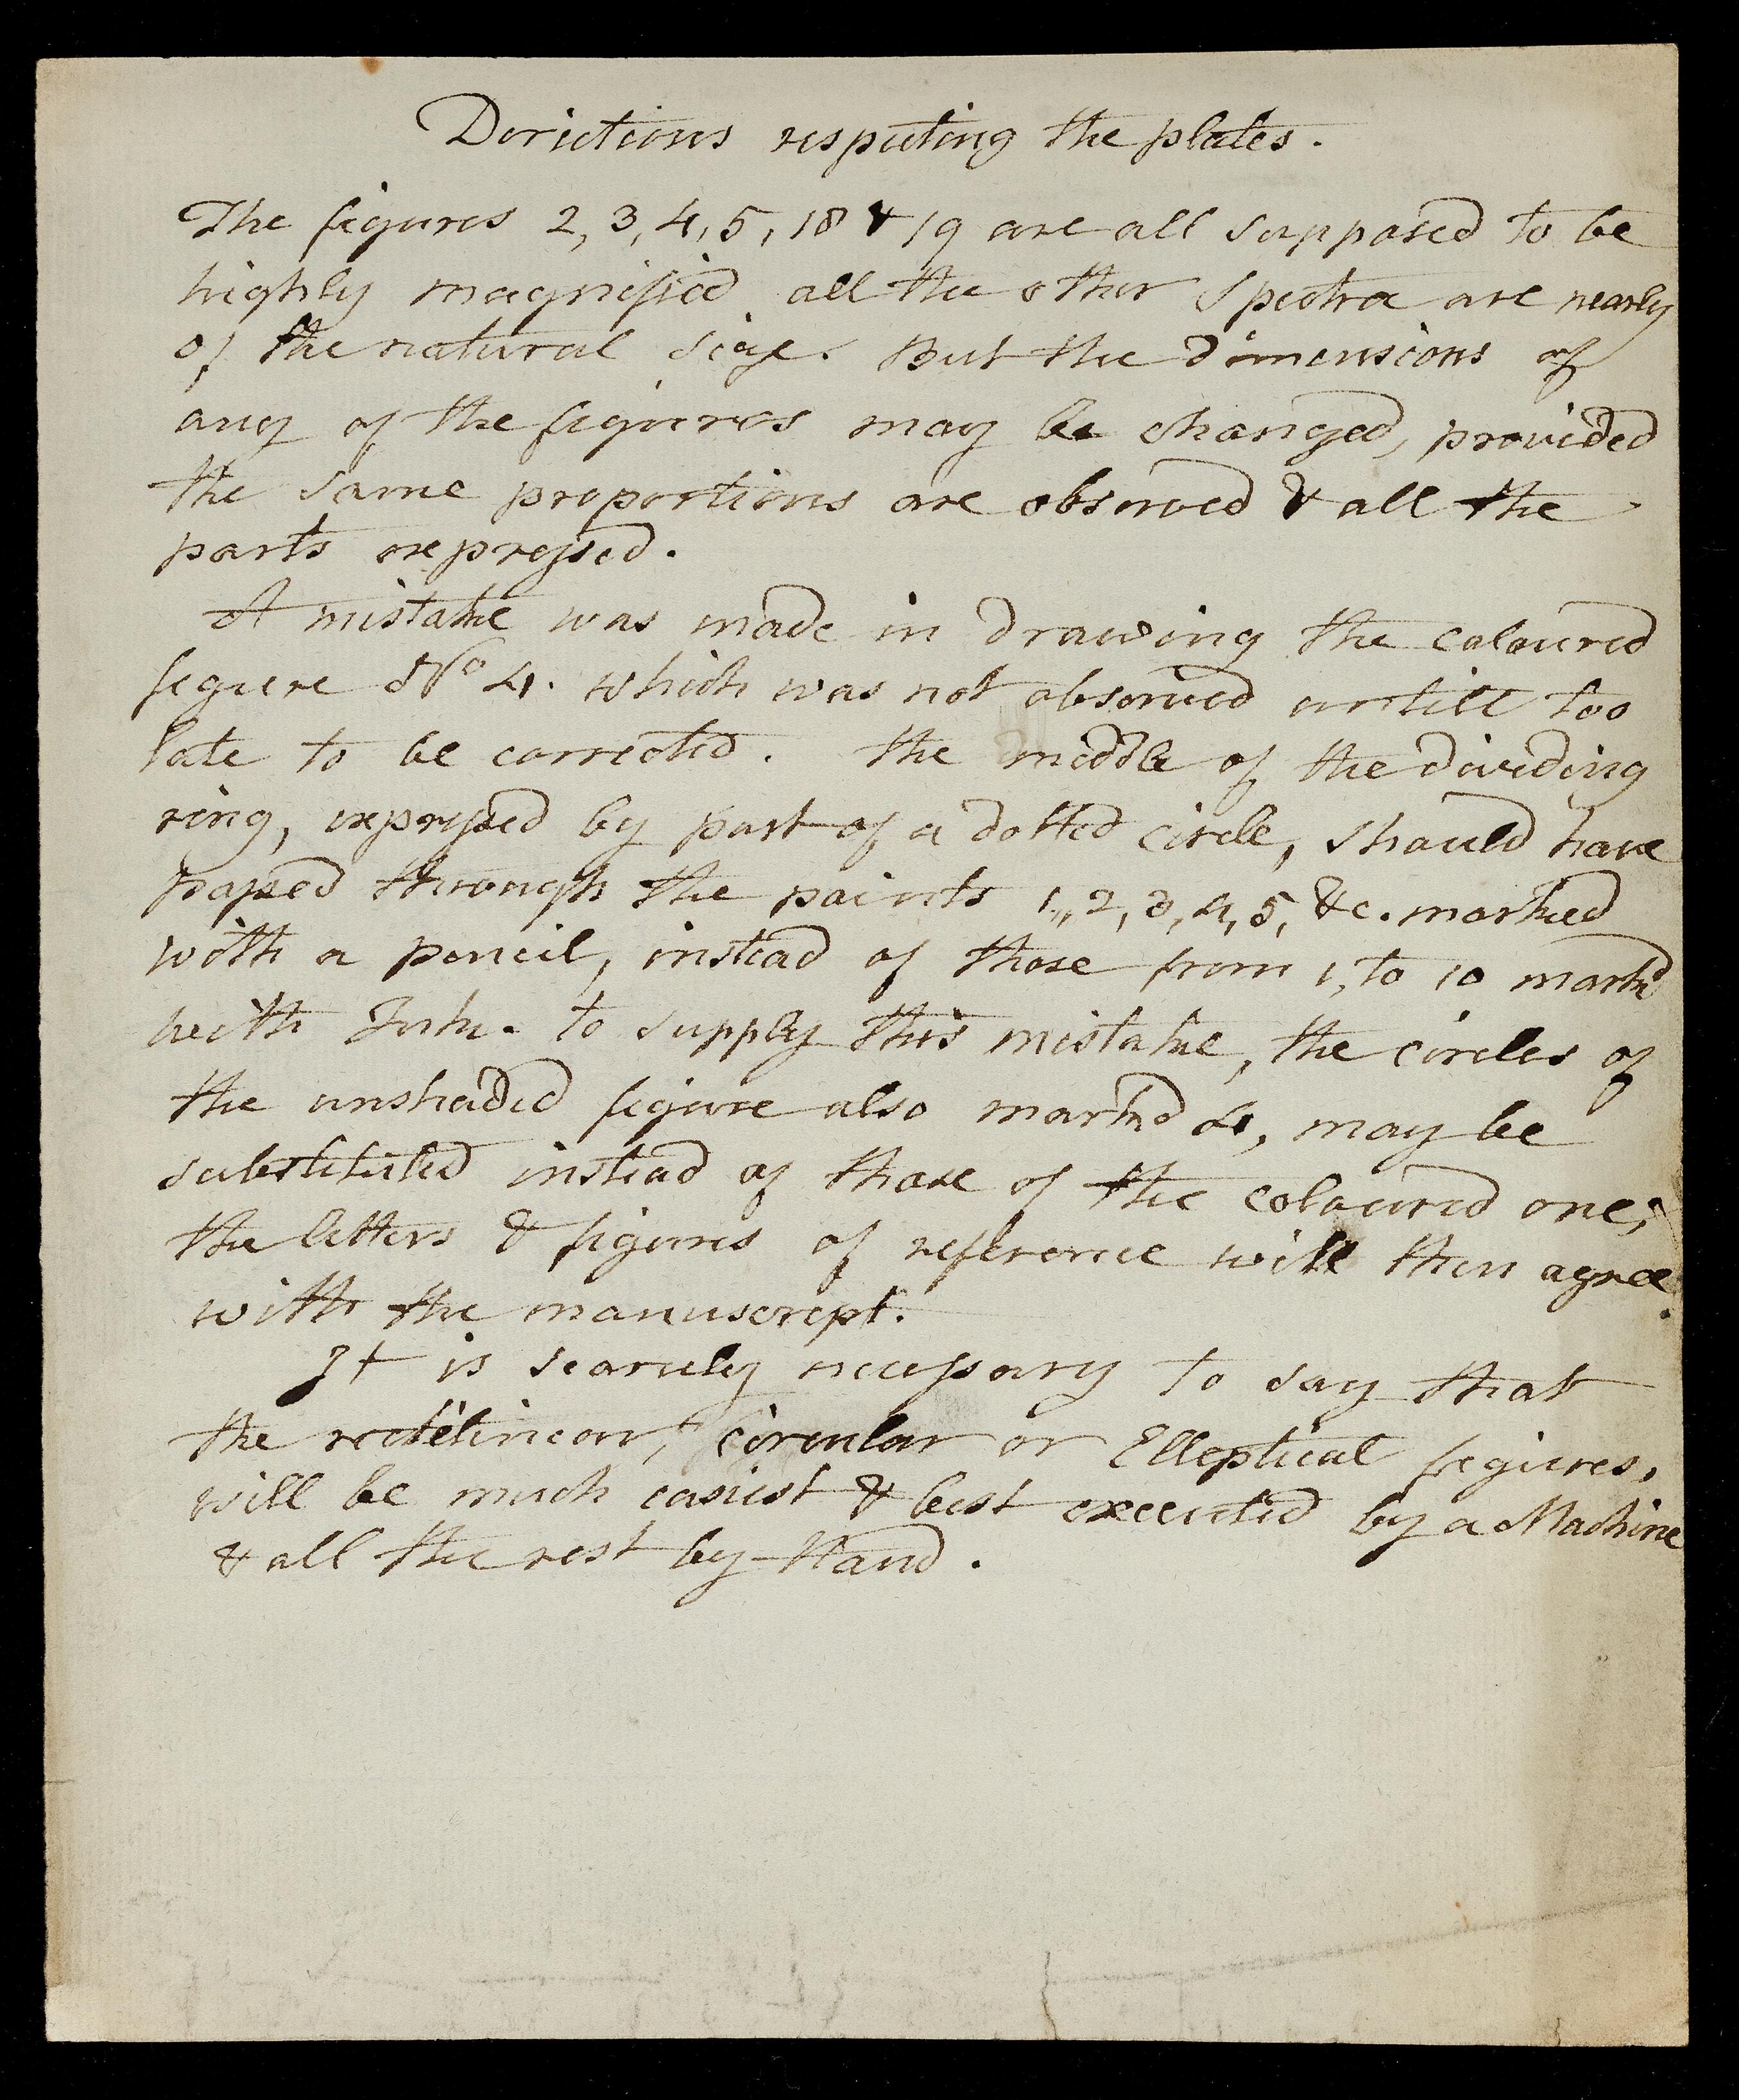 Directions respecting the plates.
The figures 2, 3, 4, 5, 18 & 19 are all supposed to be
highly magnified all the other Spectra are nearly
of the natural size. But the dimensions of
any of the figures may be changed, provided
the same proportions are observed & all the
parts expressed.
A mistake was made in drawing the coloured
figure No 4. which was not observed untill too
late to be corrected. the middle of the dividing
ring, expressed by part of a dotted circle, should have
passed through the points 1, 2, 3, 4, 5, &c. marked
with a pencil, instead of those from 1, to 10 markd
with Ink. to supply this mistake, the circles of
the unshaded figure also markd 4, may be
substituted instead of those of the coloured one;
the letters & figures of reference will then agree
with the manuscript.
It is scarcely necessary to say that
the rectelinear, circular or Elleptical figures,
will be much easiest & best executed by a Machine
& all the rest by Hand.